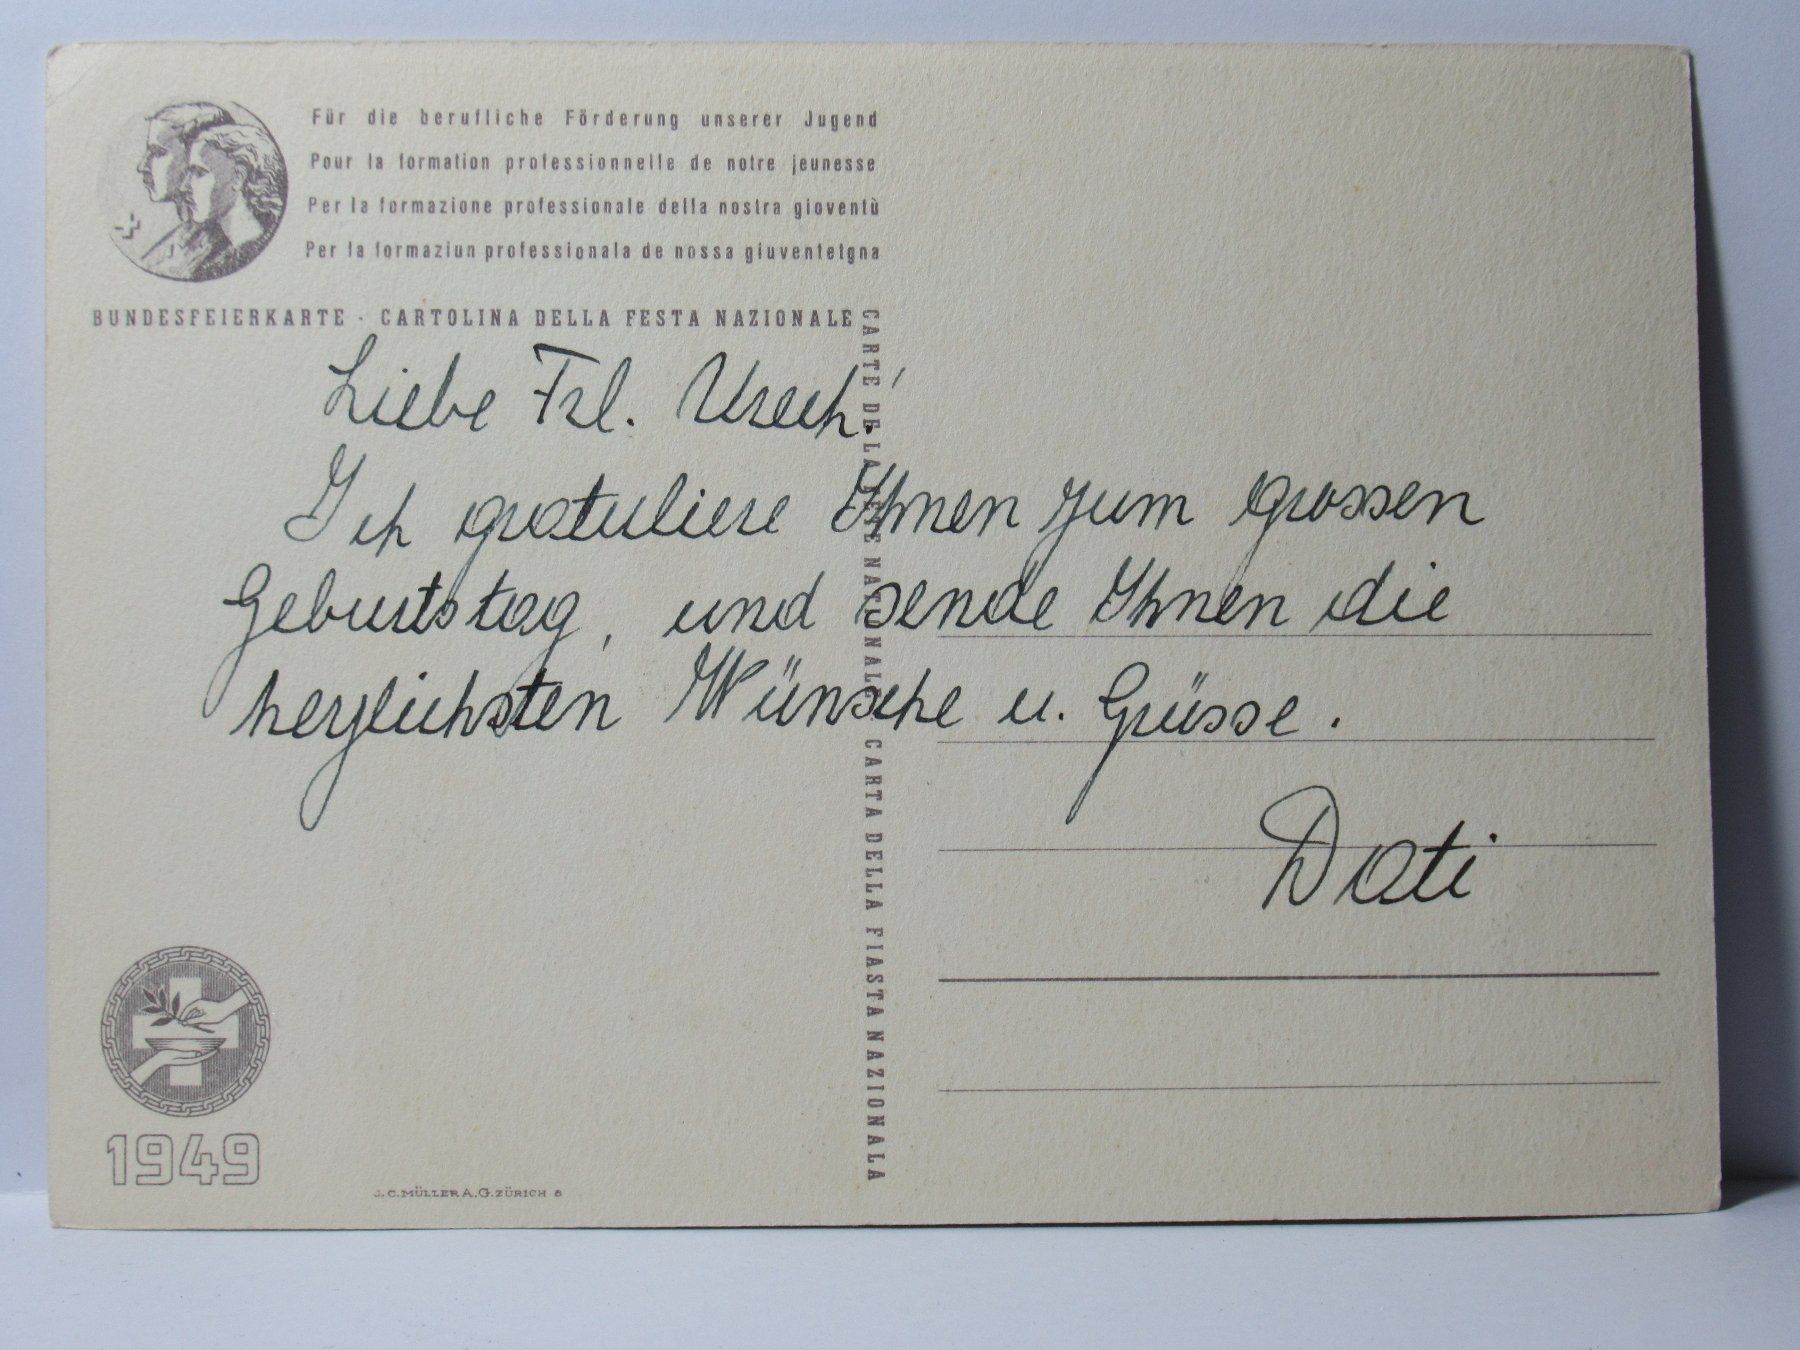 Für die berufliche Förderung unserer Jugend
Pour la formation professionnelle de notre jeunesse
Per la formazione professionale della nostra gioventù
Per la formaziun professionala de nossa giuventetgna
BUNDESFEIERKARTE · CARTOLINA DELLA FESTA NAZIONALE
CARTE DE LA FÊTE NATIONALE · CARTA DELLA FIASTA NAZIONALA
Liebe Frl. Urech!
Ich gratuliere Ihnen zum grossen
Geburtstag, und sende Ihnen die
herzlichsten Wünsche u. Grüsse.
Dati
1949
J.C.MÜLLER A.G. ZÜRICH 8